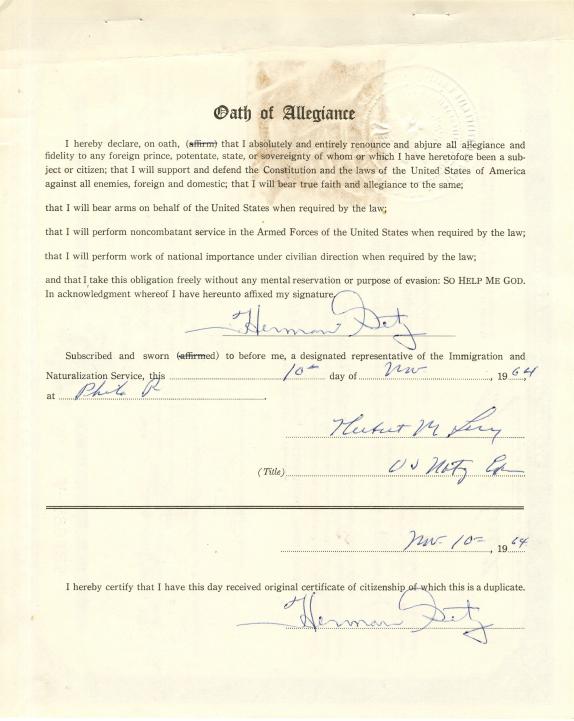 Oath of Allegiance
I hereby declare, on oath, (affirm) that I absolutely and entirely renounce and abjure all allegiance and
fidelity to any foreign prince, potentate, state, or sovereignty of whom or which I have heretofore been a sub-
ject or citizen; that I will support and defend the Constitution and the laws of the United States of America
against all enemies, foreign and domestic; that I will bear true faith and allegiance to the same;
that I will bear arms on behalf of the United States when required by the law;
that I will perform noncombatant service in the Armed Forces of the United States when required by the law;
that I will perform work of national importance under civilian direction when required by the law;
and that I take this obligation freely without any mental reservation or purpose of evasion: SO HELP ME GOD.
In acknowledgment whereof I have hereunto affixed my signature.
Herman
Subscribed and sworn (affirmed) to before me, a designated representative of the Immigration and
Naturalization Service, this 10th day of Nov, 1964,
at Phila Pa.
Herbert M
(Title) US
Nov 10, 1964
I hereby certify that I have this day received original certificate of citizenship of which this is a duplicate.
Herman